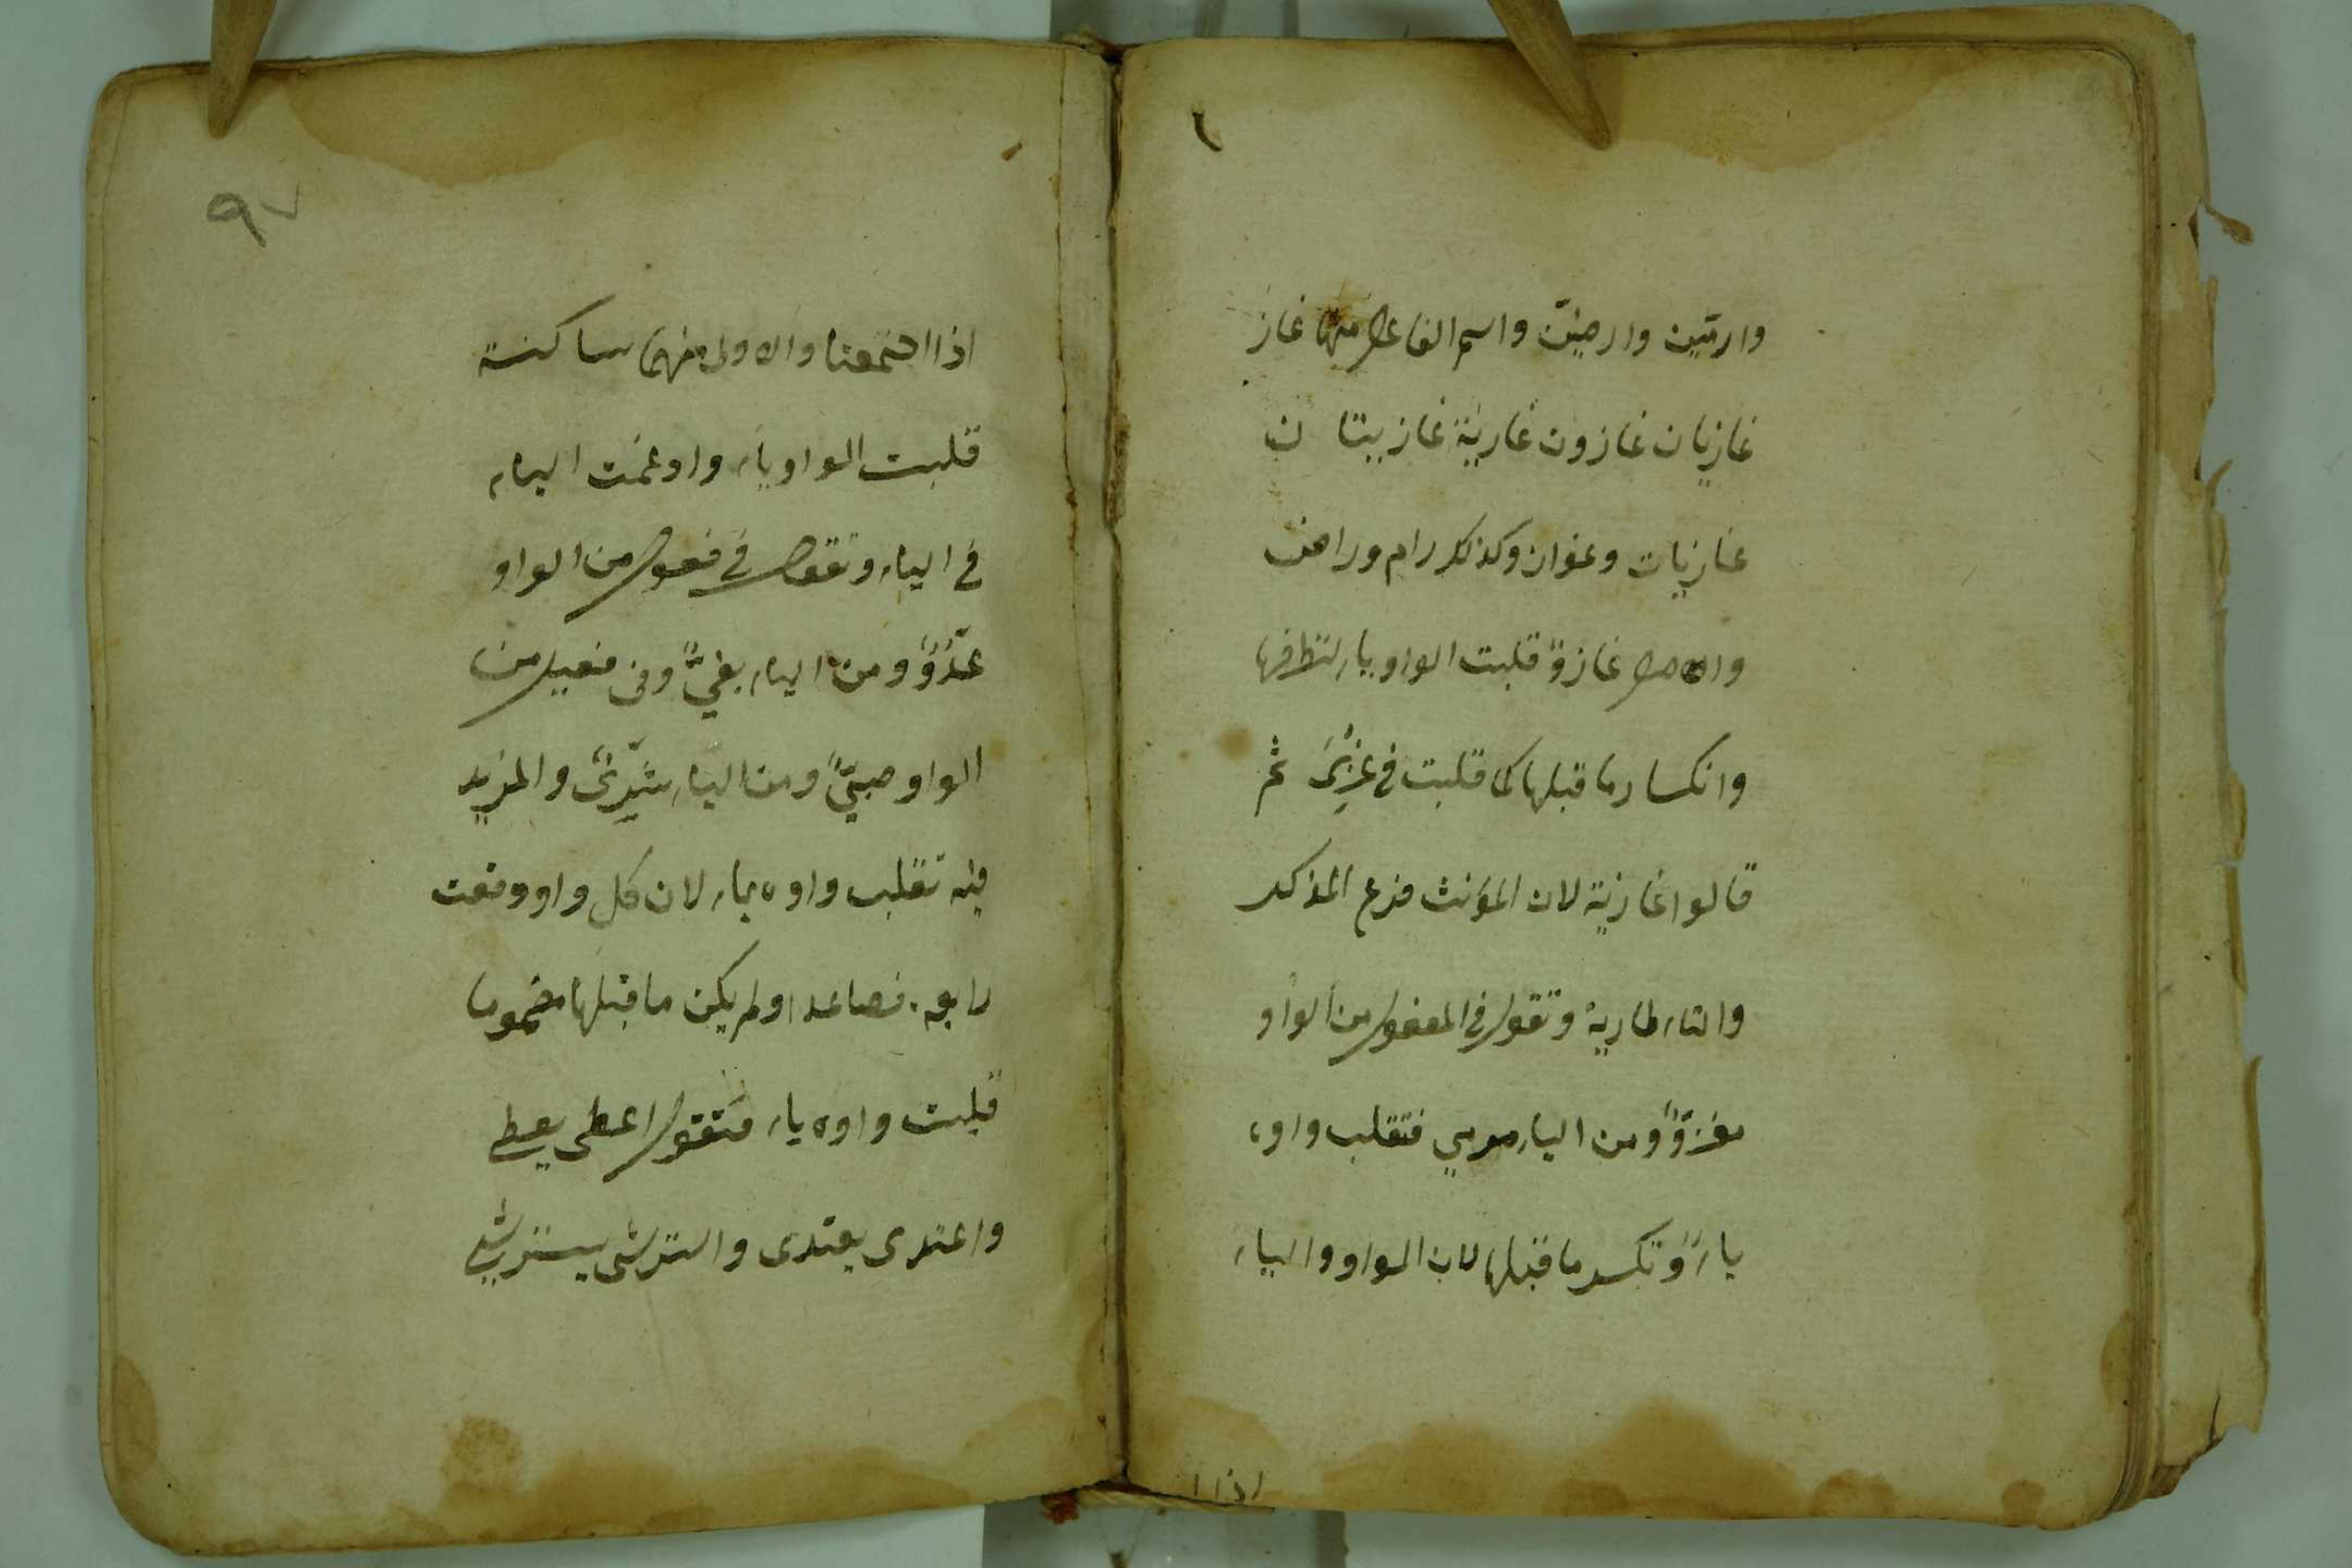 وارمين وارضين واسم الفاعل منها غاز
غازيان غازون غازية غازيتا ن
غازيات وغواز وكذلك رام وراض
والاصل غازو قلبت الواو ياء لتطرفها
وانكسار ما قبلها كما قلبت في غزي ثم
قالوا غازية لان المؤنث فرع المذكر
والتاء طارية وتقول في المفعول من الواو
مغزوّ ومن الياء مرمي فتقلب واوه
ياء وتكسر ما قبلها لان الواو والياء
اذا ا
٩٧
اذا اجتمعتا والاولى منهما ساكنة
قلبت الواو ياء وادغمت الياء
في الياء وتقول في فعول من الواو
عدوّ ومن الياء بغيّ وفي فعيل من
الواو صبيّ ومن الياء شريّ والمزيد
فيه تقلب واوه ياء لان كل واو وقعت
رابعة فصاعدا ولم يكن ما قبلها مضموما
قلبت واوه ياء فتقول اعطى يعطي
واعتدى يعتدى واسترشى يسترشي